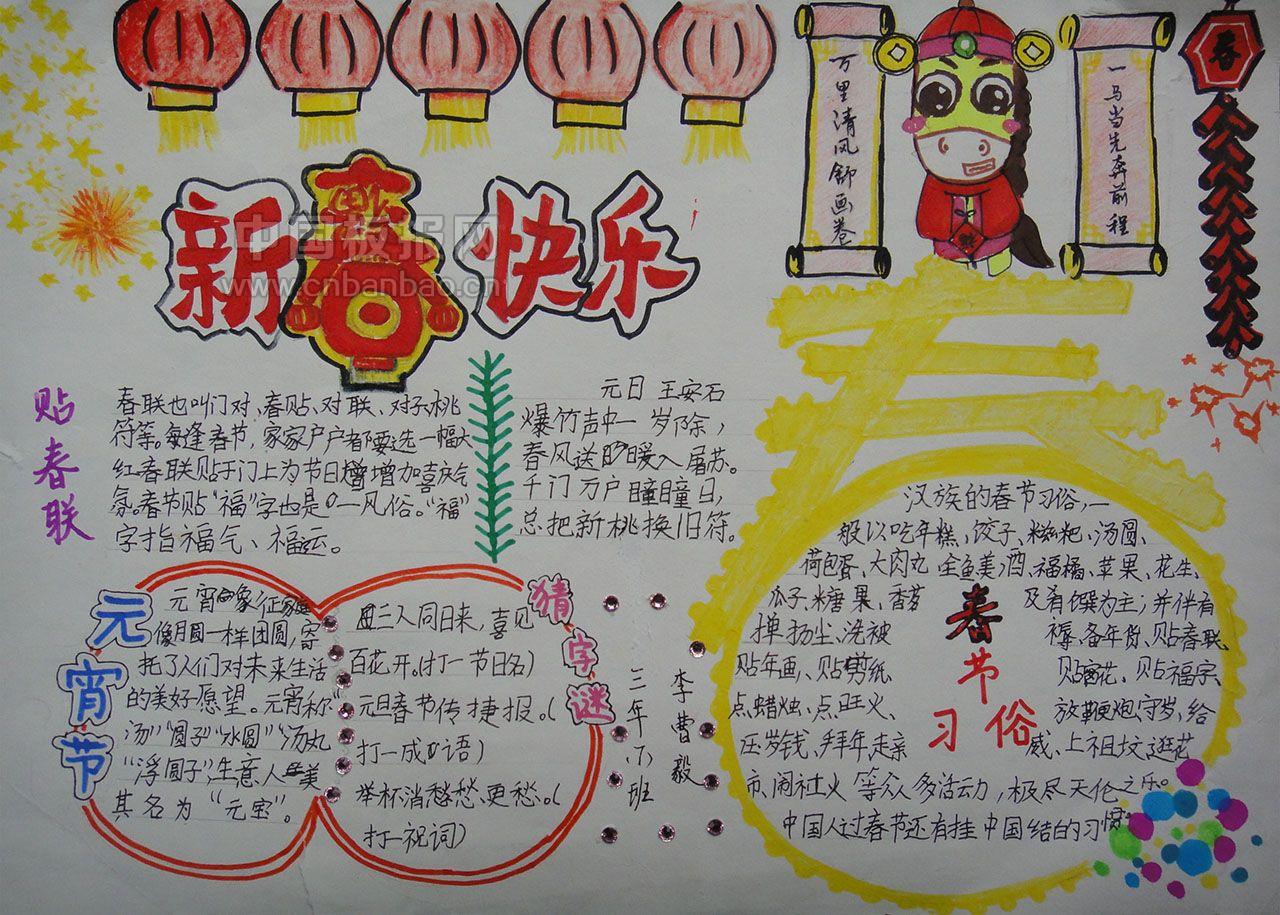 万里清风舒画卷
一马当先奔前程
春
新春快乐
中国板报网
www.cnbanbao.cn
贴春联
春联也叫门对、春贴、对联、对子、桃
符等。每逢春节,家家户户都要选一幅大
红春联贴于门上为节日增加喜庆气
氛。春节贴“福”字也是一风俗。“福”
字指福气、福运。
元日 王安石
爆竹声中一岁除,
春风送暖入屠苏。
千门万户瞳瞳日,
总把新桃换旧符。
元宵节
元宵象征
像月圆一样团圆,寄
托了人们对未来生活
的美好愿望。元宵称
“汤”“圆子”“水圆”“汤丸
“浮圆子”,生意人美
其名为“元宝”。
猜字谜
三人同日来,喜见
百花开。(打一节日名)
元旦春节传捷报。(
打一成语)
举杯消愁愁更愁。(
打一祝词)
三年(1)班
李曹毅
春节习俗
汉族的春节习俗,一
般以吃年糕、饺子、糍粑、汤圆、
荷包蛋、大肉丸、全鱼、美酒、福橘、苹果、花生、
瓜子、糖果、香茗及肴馔为主;并伴有
掸扬尘、洗被褥、备年货、贴春联
贴年画、贴剪纸、贴窗花、贴福字、
点蜡烛、点旺火、放鞭炮、守岁、给
压岁钱、拜年、走亲戚、上祖坟、逛花
市、闹社火等众多活动,极尽天伦之乐。
中国人过春节还有挂中国结的习惯